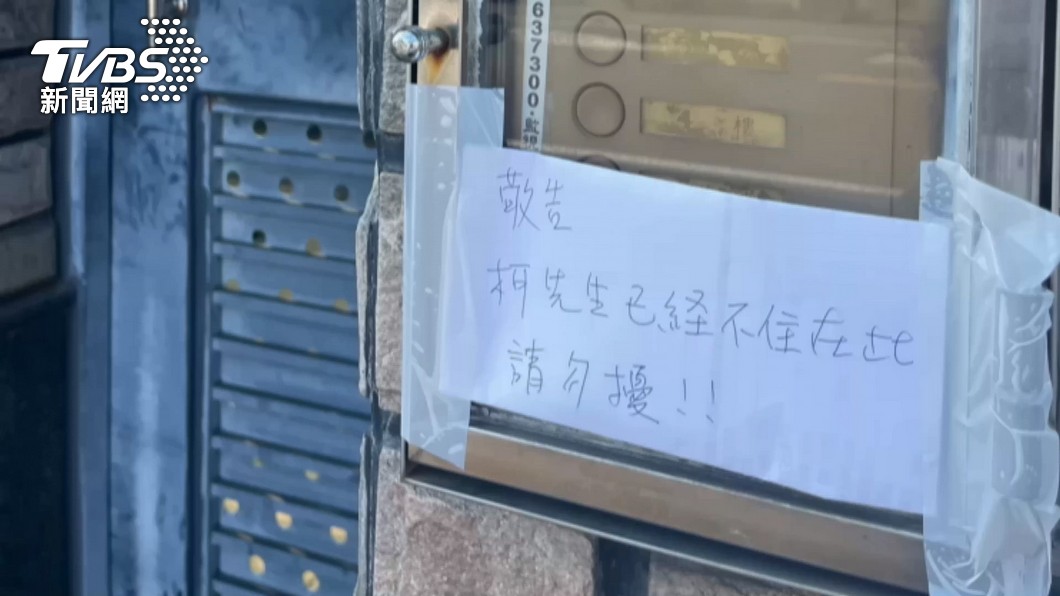 TVBS
新聞網
637300・監視
敬告
柯先生已経不住在此
請勿擾!!